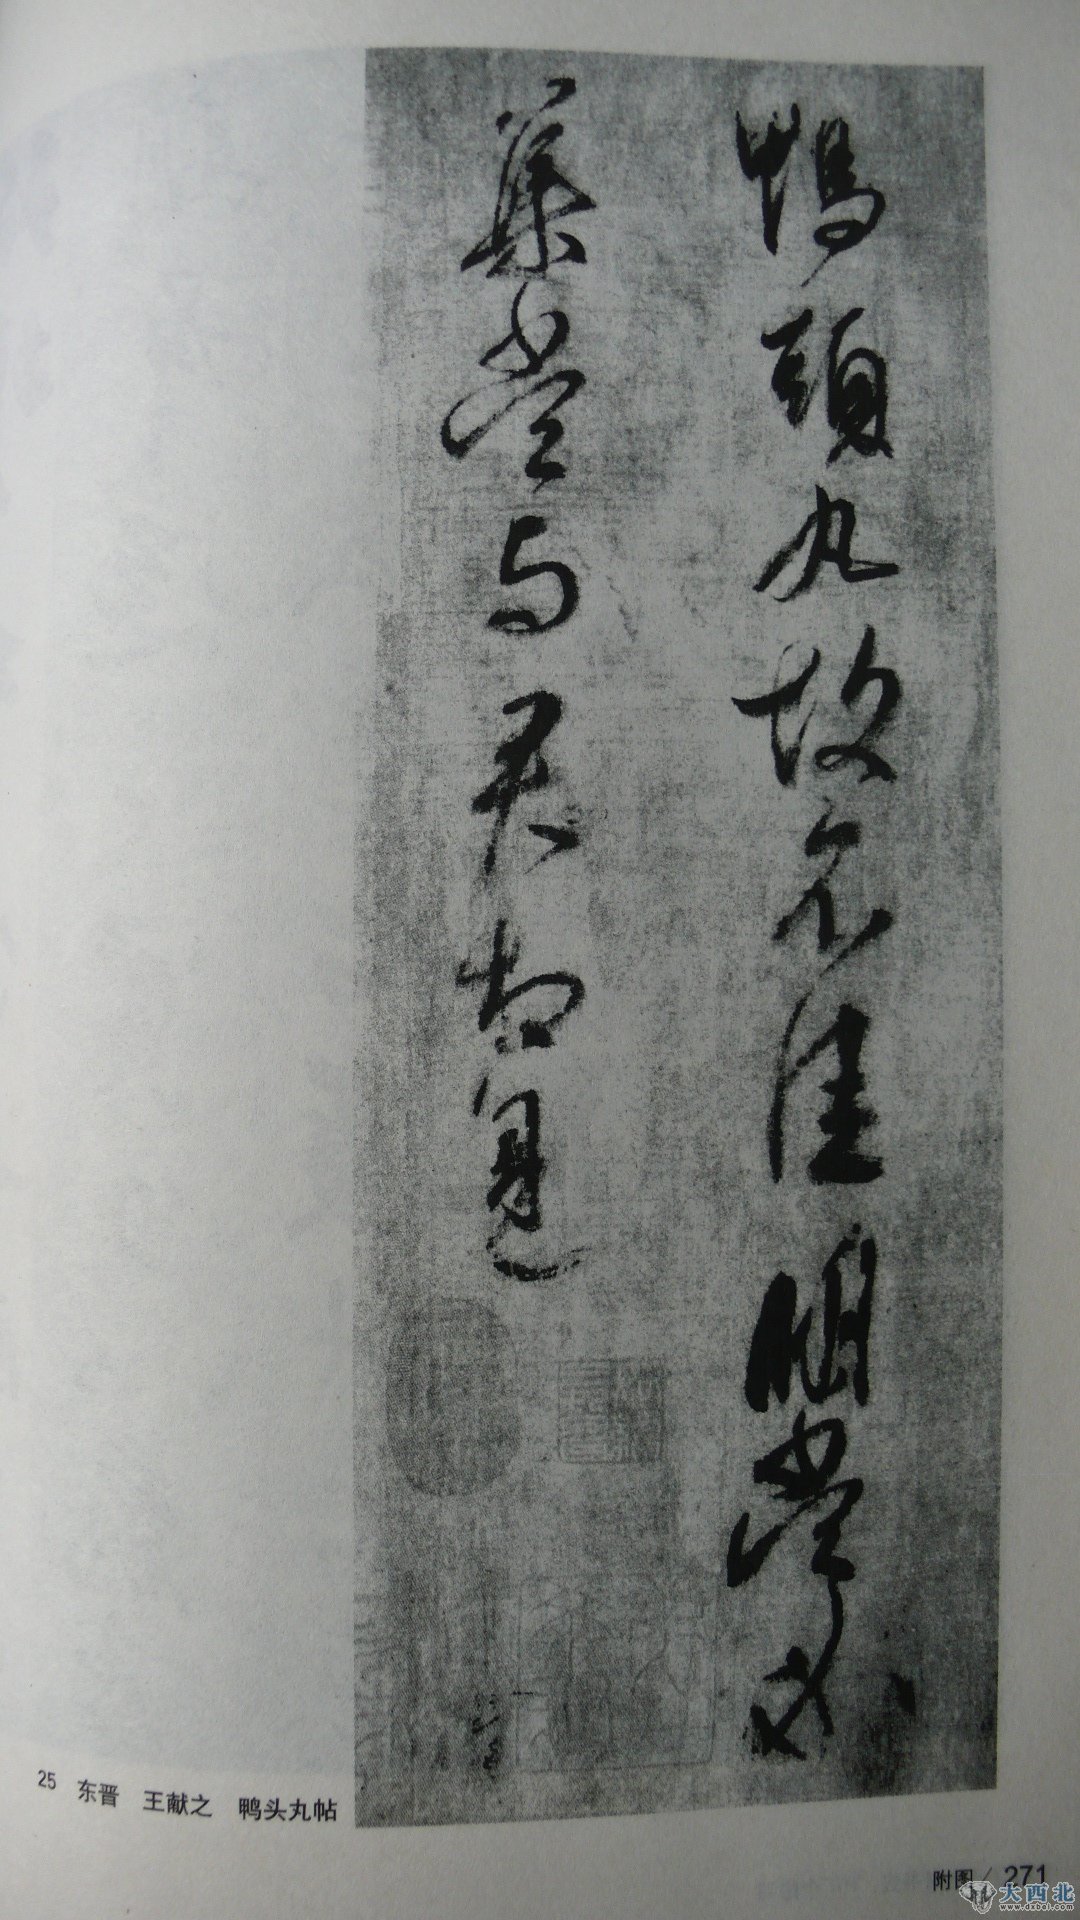 鴨頭丸故不佳明當必
集當與君相見
25 东晋 王献之 鸭头丸帖
附图/271
大西北
www.dxbei.com